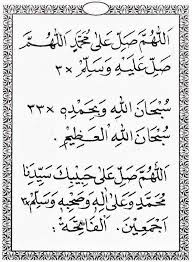 اَللّٰهُمَّ صَلِّ عَلٰى مُحَمَّدٍ اَللّٰهُمَّ
صَلِّ عَلَيْهِ وَسَلِّمْ ×٣
سُبْحَانَ اللهِ وَبِحَمْدِهِ ×٣٣
سُبْحَانَ اللهِ الْعَظِيْمِ
اَللّٰهُمَّ صَلِّ عَلٰى حَبِيْبِكَ سَيِّدِنَا
مُحَمَّدٍ وَعَلٰى اٰلِهِ وَصَحْبِهِ وَسَلِّمْ
اَجْمَعِيْنَ. اَلْفَاتِحَةْ: